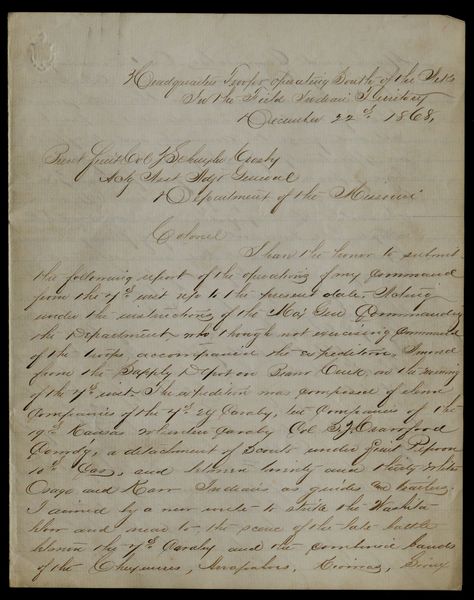 Headquarters Troops operating South of the Ark
In the Field Indian Territory
December 22d 1868,
Brevt Lieut Col J Schuyler Crosby
A A Adjt General
Department of the Missouri
Colonel
I have the honor to submit
the following report of the operations of my command
from the 7th inst up to the present date. Acting
under the instructions of the Maj Genl Commanding
the Department who though not exercising command
of the troops, accompanied the expedition, I moved
from the Supply Depot on Beaver Creek, on the morning
of the 7th inst. The expedition was composed of eleven
Companies of the 7th US Cavalry, ten Companies of the
19th Kansas Volunteer Cavalry Col S J Crawford
Comdg, a detachment of scouts under Lieut Pepoon
10th Cav, and between twenty and thirty whites
Osage and Kaw Indians as guides and trailers
I aimed by a new route to strike the Washita
below and near to the scene of the late battle
between the 7th Cavalry and the combined bands
of the Cheyennes, Arrapahoes, Kiowas,